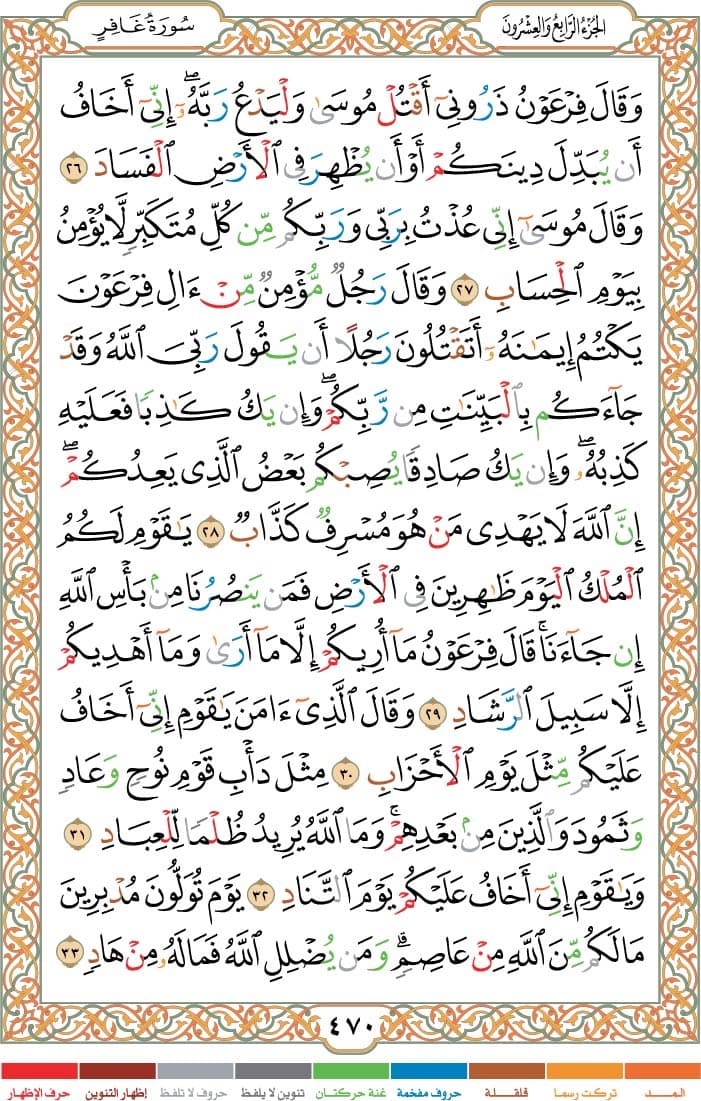 الجزء الرابع والعشرون
سورة غافر
وَقَالَ فِرْعَوْنُ ذَرُونِىٓ أَقْتُلْ مُوسَىٰ وَلْيَدْعُ رَبَّهُۥٓ ۖ إِنِّىٓ أَخَافُ
أَن يُبَدِّلَ دِينَكُمْ أَوْ أَن يُظْهِرَ فِى ٱلْأَرْضِ ٱلْفَسَادَ ٢٦
وَقَالَ مُوسَىٰٓ إِنِّى عُذْتُ بِرَبِّى وَرَبِّكُم مِّن كُلِّ مُتَكَبِّرٍ لَّا يُؤْمِنُ
بِيَوْمِ ٱلْحِسَابِ ٢٧ وَقَالَ رَجُلٌ مُّؤْمِنٌ مِّنْ ءَالِ فِرْعَوْنَ
يَكْتُمُ إِيمَٰنَهُۥٓ أَتَقْتُلُونَ رَجُلًا أَن يَقُولَ رَبِّىَ ٱللَّهُ وَقَدْ
جَآءَكُم بِٱلْبَيِّنَٰتِ مِن رَّبِّكُمْ ۖ وَإِن يَكُ كَٰذِبًا فَعَلَيْهِ
كَذِبُهُۥ ۖ وَإِن يَكُ صَادِقًا يُصِبْكُم بَعْضُ ٱلَّذِى يَعِدُكُمْ ۖ
إِنَّ ٱللَّهَ لَا يَهْدِى مَنْ هُوَ مُسْرِفٌ كَذَّابٌ ٢٨ يَٰقَوْمِ لَكُمُ
ٱلْمُلْكُ ٱلْيَوْمَ ظَٰهِرِينَ فِى ٱلْأَرْضِ فَمَن يَنصُرُنَا مِنۢ بَأْسِ ٱللَّهِ
إِن جَآءَنَا ۚ قَالَ فِرْعَوْنُ مَآ أُرِيكُمْ إِلَّا مَآ أَرَىٰ وَمَآ أَهْدِيكُمْ
إِلَّا سَبِيلَ ٱلرَّشَادِ ٢٩ وَقَالَ ٱلَّذِىٓ ءَامَنَ يَٰقَوْمِ إِنِّىٓ أَخَافُ
عَلَيْكُم مِّثْلَ يَوْمِ ٱلْأَحْزَابِ ٣٠ مِثْلَ دَأْبِ قَوْمِ نُوحٍ وَعَادٍ
وَثَمُودَ وَٱلَّذِينَ مِنۢ بَعْدِهِمْ ۚ وَمَا ٱللَّهُ يُرِيدُ ظُلْمًا لِّلْعِبَادِ ٣١
وَيَٰقَوْمِ إِنِّىٓ أَخَافُ عَلَيْكُمْ يَوْمَ ٱلتَّنَادِ ٣٢ يَوْمَ تُوَلُّونَ مُدْبِرِينَ
مَا لَكُم مِّنَ ٱللَّهِ مِنْ عَاصِمٍ ۗ وَمَن يُضْلِلِ ٱللَّهُ فَمَا لَهُۥ مِنْ هَادٍ ٣٣
٤٧٠
المـــد
تركت رسما
قلقـــلة
حروف مفخمة
غنة حركتان
تنوين لا يلفظ
حروف لا تلفظ
إظهار التنوين
حرف الإظهار